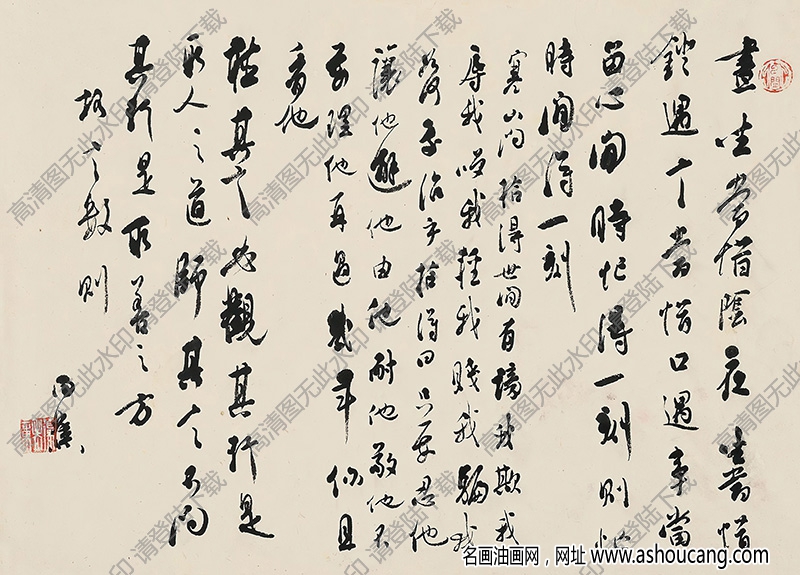 晝坐當惜陰夜坐當惜
鐙遇言當惜口遇事當
留心閒時忙得一刻則忙
時閒得一刻
寒山問拾得世間有謗我欺我
辱我笑我輕我賤我騙我
如何處治乎拾得曰只要忍他
讓他避他由他耐他敬他不
要理他再過幾年你且
看他
聽其言必觀其行是
取人之道師其言不問
其行是取善之方
格言數則
白蕉
高清图无此水印 请登陆下载
名画油画网，网址 www.ashoucang.com